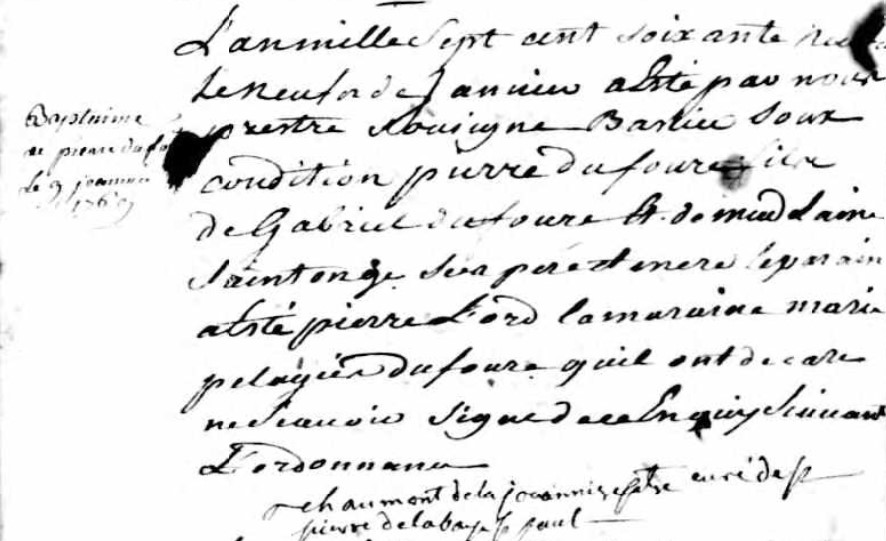 Baptisme
de pierre dufo
le 9 janvier
1769
L'an mille sept cent soixante neuf
le neufor de Janvier a Esté par nous
prestre souigne Baslie soux
condition pierre dufoure filx
de Gabriel dufoure Et de madelaine
saintonge ses pere et mere le parain
a Esté pierre L'ord la maraine marie
pelagie dufoure quil ont decare
ne scauoir signe de ce Enquiy suivant
L'ordonnance
chaumont de la jouannize ptre curé de st
pierre de la baye st paul